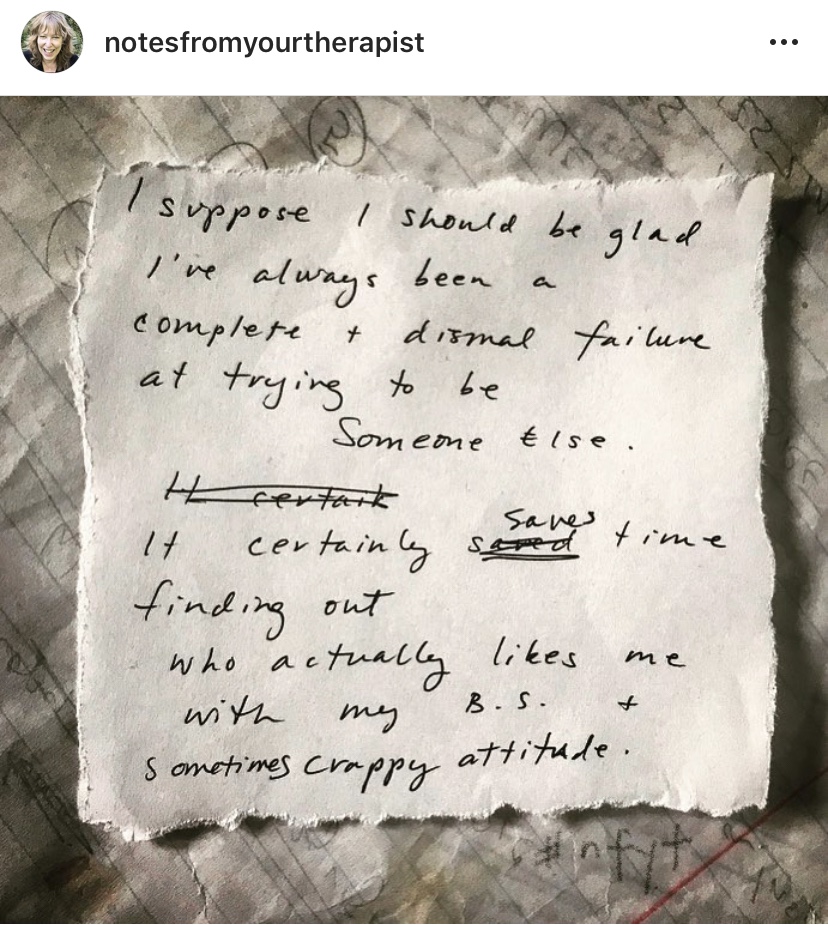 notesfromyourtherapist
I suppose I should be glad
I've always been a
complete + dismal failure
at trying to be
Someone Else.
It certain
saves
It certainly saved time
finding out
who actually likes me
with my B.S. +
sometimes crappy attitude.
#nfyt